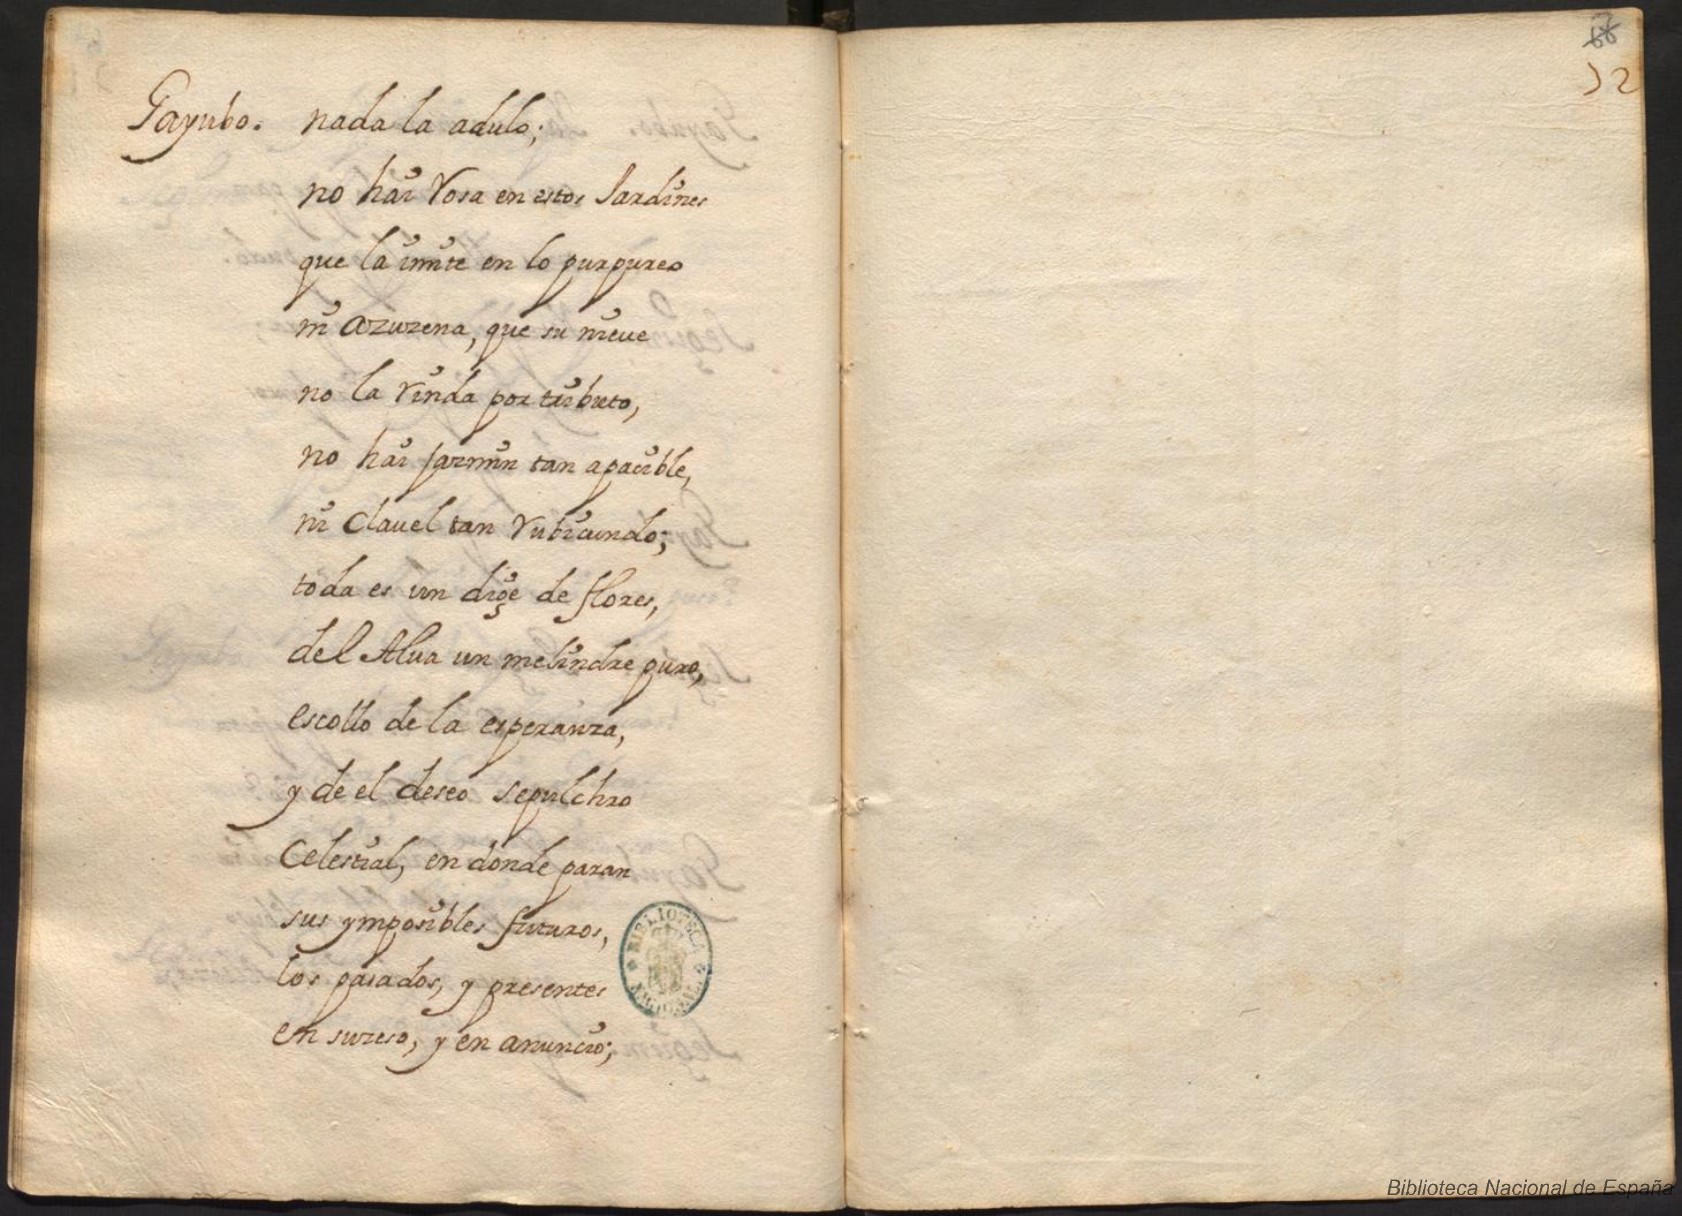 Gayubo. nada la adulo;
no hai Rosa en estos Jardines
que la imite en lo purpureo
ni azuzena, que su nieue
no la rinda por tributo,
no hai jazmin tan apacible,
ni Clauel tan rubicundo;
toda es un dige de flores,
del Alua un melindre puro,
escollo de la esperanza,
y de el deseo sepulchro
Celestial, en donde paran
sus ymposibles futuros,
los pasados, y presentes
en suzeso, y en anuncio;
BIBLIOTECA NACIONAL
68
52
Biblioteca Nacional de España